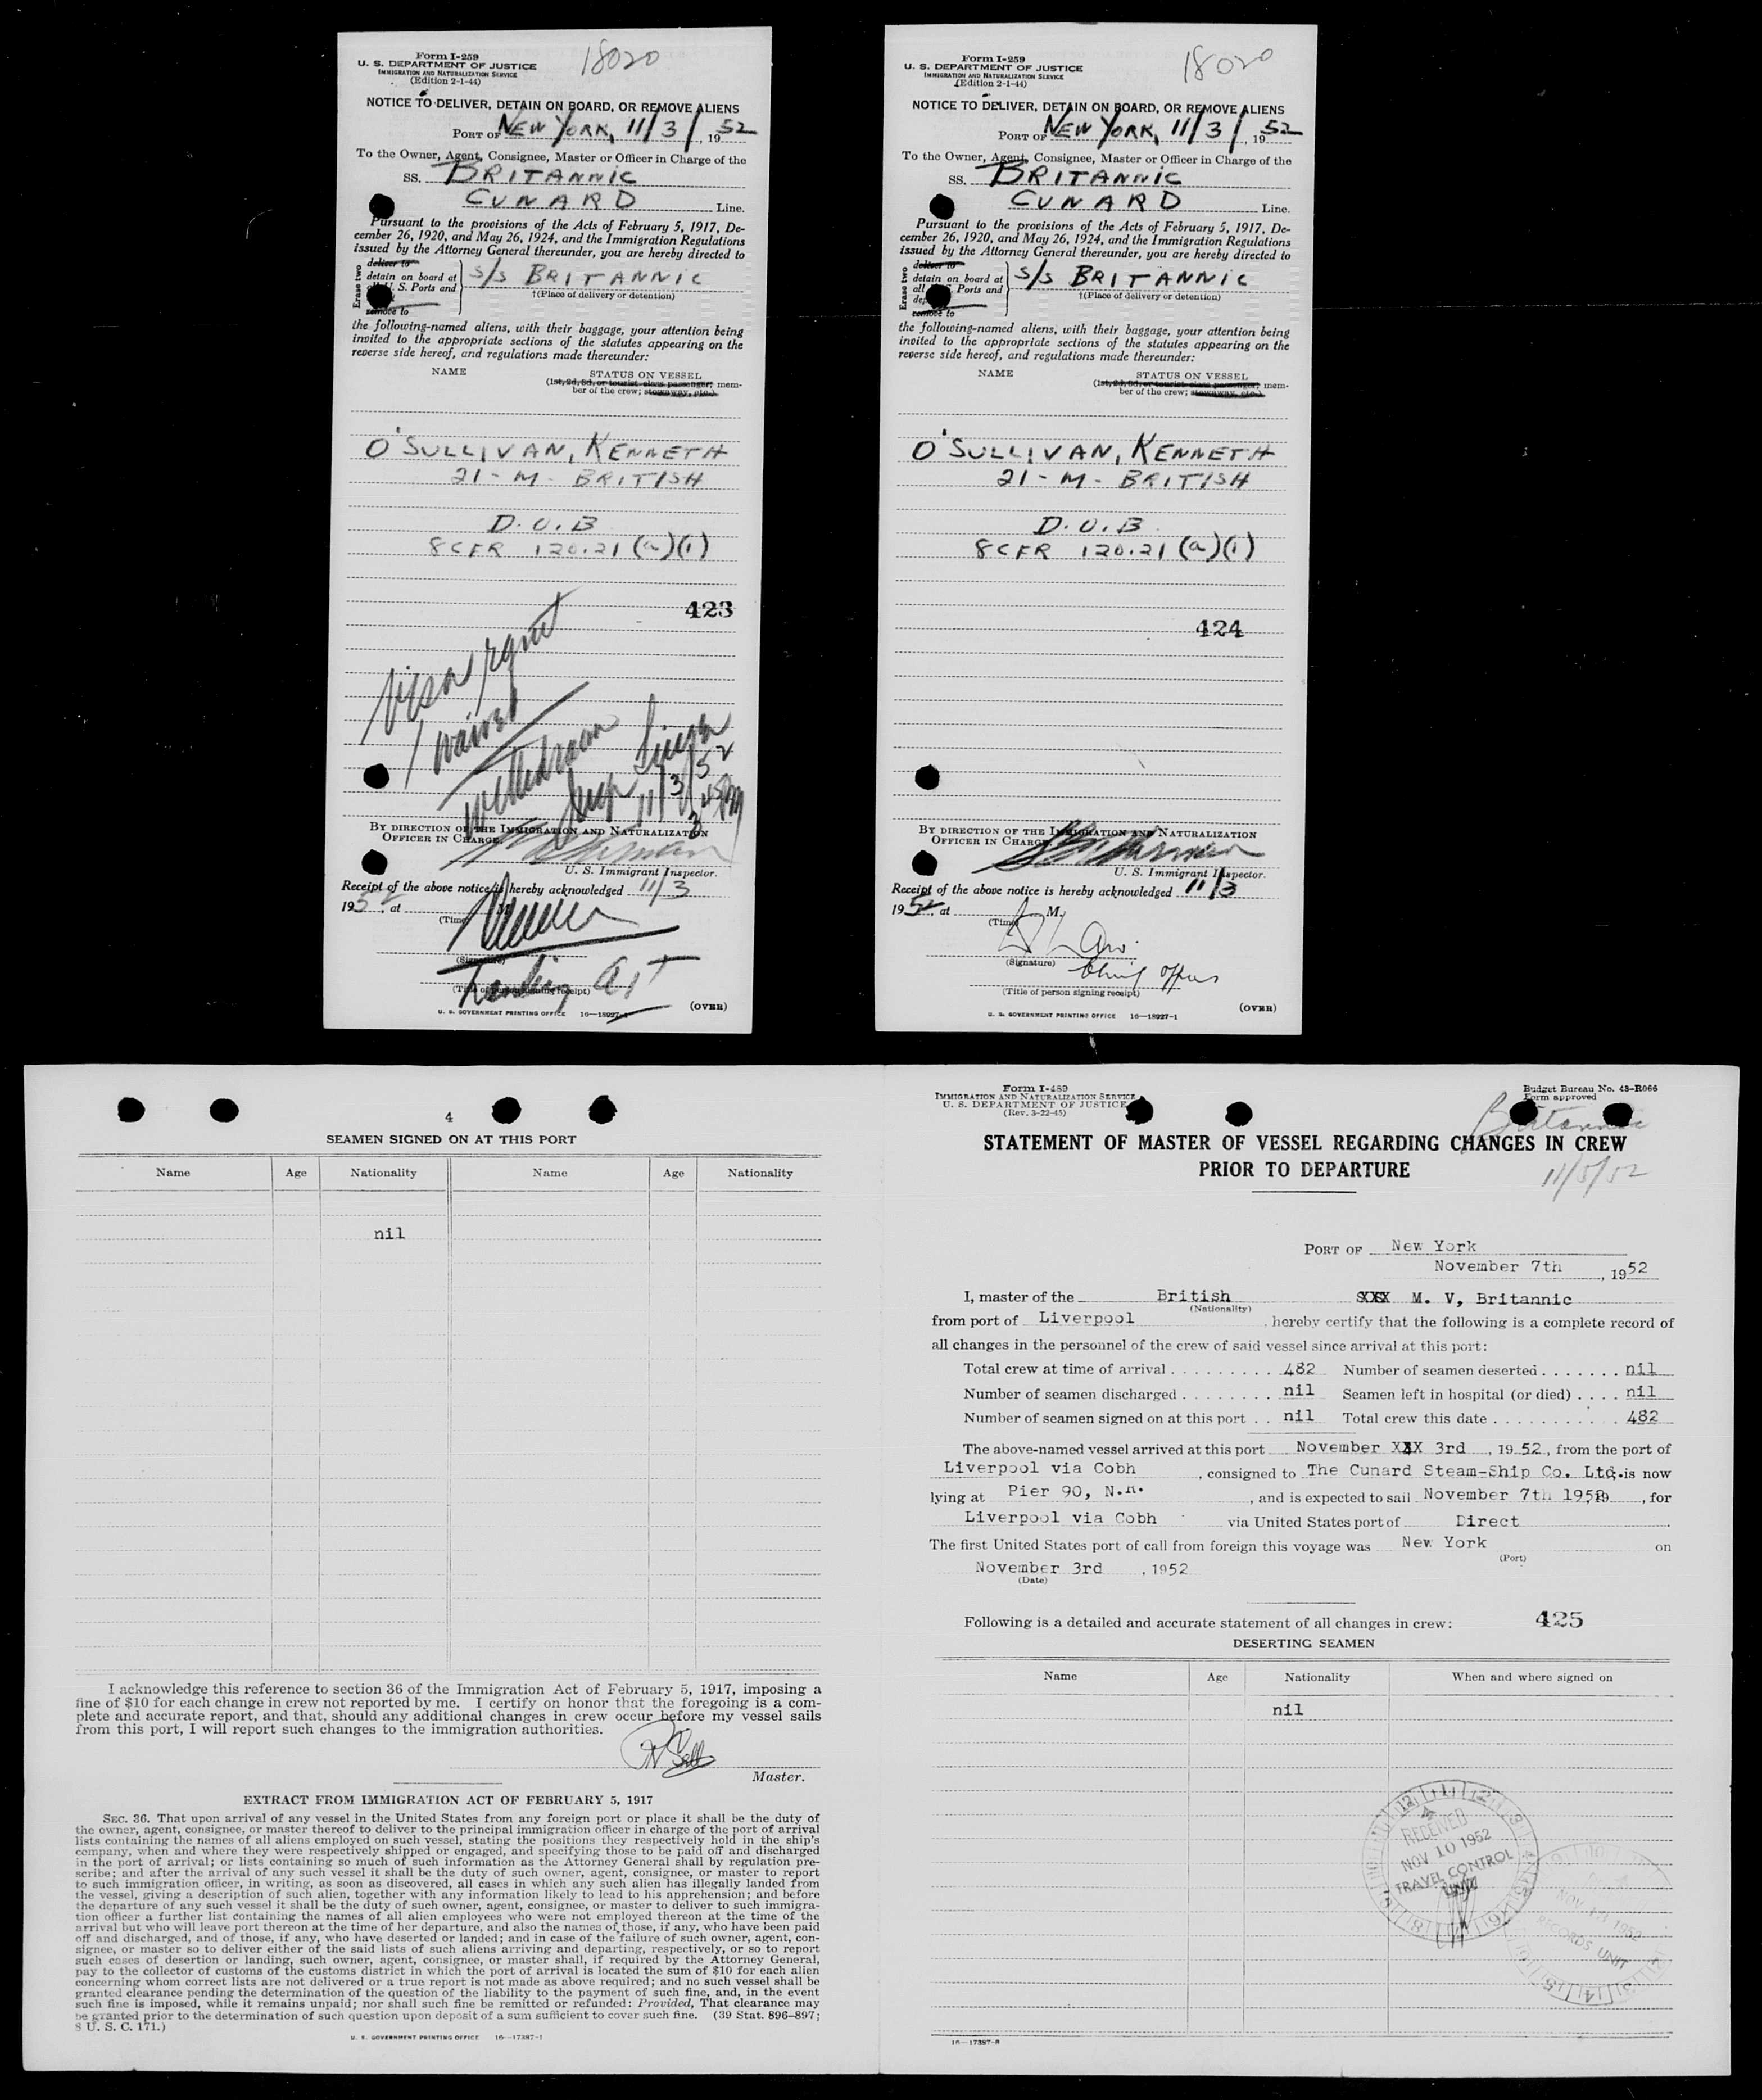 Form I-259
U. S. DEPARTMENT OF JUSTICE
IMMIGRATION AND NATURALIZATION SERVICE
(Edition 2-1-44)
18020
NOTICE TO DELIVER, DETAIN ON BOARD, OR REMOVE ALIENS
PORT OF NEW YORK, 11/3/, 1952
To the Owner, Agent, Consignee, Master or Officer in Charge of the
SS. BRITANNIC
CUNARD Line.
Pursuant to the provisions of the Acts of February 5, 1917, De-
cember 26, 1920, and May 26, 1924, and the Immigration Regulations
issued by the Attorney General thereunder, you are hereby directed to
Erase two
deliver to
detain on board at
S. Ports and
remove to
S/S BRITANNIC
†(Place of delivery or detention)
the following-named aliens, with their baggage, your attention being
invited to the appropriate sections of the statutes appearing on the
reverse side hereof, and regulations made thereunder:
NAME STATUS ON VESSEL
(1st, 2d, 3d, or tourist class passenger; mem-
ber of the crew; stowaway, etc.)
O'SULLIVAN, KENNETH
21 - M - BRITISH
D.O.B
8 CFR 120.21 (a)(1)
423
Visa rqmt
waived
Withdrawn
11/3/52
3 45 PM
BY DIRECTION OF THE IMMIGRATION AND NATURALIZATION
OFFICER IN CHARGE.
U. S. Immigrant Inspector.
Receipt of the above notice is hereby acknowledged 11/3
1952, at M.
(Time)
(Signature)
Landing Agt
(Title of person signing receipt)
(OVER)
U. S. GOVERNMENT PRINTING OFFICE 16—18927-1
Form I-259
U. S. DEPARTMENT OF JUSTICE
IMMIGRATION AND NATURALIZATION SERVICE
(Edition 2-1-44)
18020
NOTICE TO DELIVER, DETAIN ON BOARD, OR REMOVE ALIENS
PORT OF NEW YORK, 11/3/, 1952
To the Owner, Agent, Consignee, Master or Officer in Charge of the
SS. BRITANNIC
CUNARD Line.
Pursuant to the provisions of the Acts of February 5, 1917, De-
cember 26, 1920, and May 26, 1924, and the Immigration Regulations
issued by the Attorney General thereunder, you are hereby directed to
Erase two
deliver to
detain on board at
all Ports and
remove to
S/S BRITANNIC
†(Place of delivery or detention)
the following-named aliens, with their baggage, your attention being
invited to the appropriate sections of the statutes appearing on the
reverse side hereof, and regulations made thereunder:
NAME STATUS ON VESSEL
(1st, 2d, 3d, or tourist class passenger; mem-
ber of the crew; stowaway, etc.)
O'SULLIVAN, KENNETH
21 - M - BRITISH
D.O.B.
8 CFR 120.21 (a)(1)
424
BY DIRECTION OF THE IMMIGRATION AND NATURALIZATION
OFFICER IN CHARGE.
U. S. Immigrant Inspector.
Receipt of the above notice is hereby acknowledged 11/3
1952, at M.
(Time)
(Signature)
Chief Officer
(Title of person signing receipt)
(OVER)
U. S. GOVERNMENT PRINTING OFFICE 16—18927-1
4
SEAMEN SIGNED ON AT THIS PORT
Name Age Nationality Name Age Nationality
nil
I acknowledge this reference to section 36 of the Immigration Act of February 5, 1917, imposing a
fine of $10 for each change in crew not reported by me. I certify on honor that the foregoing is a com-
plete and accurate report, and that, should any additional changes in crew occur before my vessel sails
from this port, I will report such changes to the immigration authorities.
Master.
EXTRACT FROM IMMIGRATION ACT OF FEBRUARY 5, 1917
SEC. 36. That upon arrival of any vessel in the United States from any foreign port or place it shall be the duty of
the owner, agent, consignee, or master thereof to deliver to the principal immigration officer in charge of the port of arrival
lists containing the names of all aliens employed on such vessel, stating the positions they respectively hold in the ship's
company, when and where they were respectively shipped or engaged, and specifying those to be paid off and discharged
in the port of arrival; or lists containing so much of such information as the Attorney General shall by regulation pre-
scribe; and after the arrival of any such vessel it shall be the duty of such owner, agent, consignee, or master to report
to such immigration officer, in writing, as soon as discovered, all cases in which any such alien has illegally landed from
the vessel, giving a description of such alien, together with any information likely to lead to his apprehension; and before
the departure of any such vessel it shall be the duty of such owner, agent, consignee, or master to deliver to such immigra-
tion officer a further list containing the names of all alien employees who were not employed thereon at the time of the
arrival but who will leave port thereon at the time of her departure, and also the names of those, if any, who have been paid
off and discharged, and of those, if any, who have deserted or landed; and in case of the failure of such owner, agent, con-
signee, or master so to deliver either of the said lists of such aliens arriving and departing, respectively, or so to report
such cases of desertion or landing, such owner, agent, consignee, or master shall, if required by the Attorney General,
pay to the collector of customs of the customs district in which the port of arrival is located the sum of $10 for each alien
concerning whom correct lists are not delivered or a true report is not made as above required; and no such vessel shall be
granted clearance pending the determination of the question of the liability to the payment of such fine, and, in the event
such fine is imposed, while it remains unpaid; nor shall such fine be remitted or refunded: Provided, That clearance may
be granted prior to the determination of such question upon deposit of a sum sufficient to cover such fine. (39 Stat. 896–897;
8 U. S. C. 171.)
U. S. GOVERNMENT PRINTING OFFICE 16—17387-1
Form I-489
IMMIGRATION AND NATURALIZATION SERVICE
U. S. DEPARTMENT OF JUSTICE
(Rev. 3-22-45)
Budget Bureau No. 43-R066
Form approved
Britannic
STATEMENT OF MASTER OF VESSEL REGARDING CHANGES IN CREW
PRIOR TO DEPARTURE
11/5/52
PORT OF New York
November 7th, 1952
I, master of the British XXX M. V, Britannic
(Nationality)
from port of Liverpool, hereby certify that the following is a complete record of
all changes in the personnel of the crew of said vessel since arrival at this port:
Total crew at time of arrival . . . . . . . . . 482 Number of seamen deserted . . . . . . . nil
Number of seamen discharged . . . . . . . . nil Seamen left in hospital (or died) . . . . nil
Number of seamen signed on at this port . . nil Total crew this date . . . . . . . . . . . 482
The above-named vessel arrived at this port November XXX 3rd, 1952, from the port of
Liverpool via Cobh, consigned to The Cunard Steam-Ship Co. Ltd. is now
lying at Pier 90, N.R., and is expected to sail November 7th 1952, for
Liverpool via Cobh via United States port of Direct
The first United States port of call from foreign this voyage was New York on
(Port)
November 3rd, 1952
(Date)
Following is a detailed and accurate statement of all changes in crew: 425
DESERTING SEAMEN
Name Age Nationality When and where signed on
nil
RECEIVED
NOV 10 1952
TRAVEL CONTROL
UNIT
NOV 13 1952
RECORDS UNIT
16—17387-3